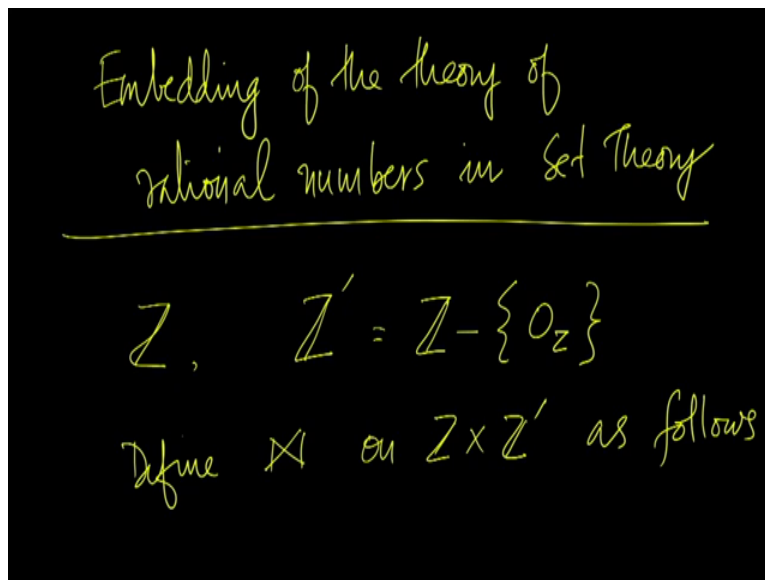 Embedding of the theory of
rational numbers in Set Theory
ℤ, ℤ' = ℤ - {0_ℤ}
Define ⋈ on ℤ × ℤ' as follows